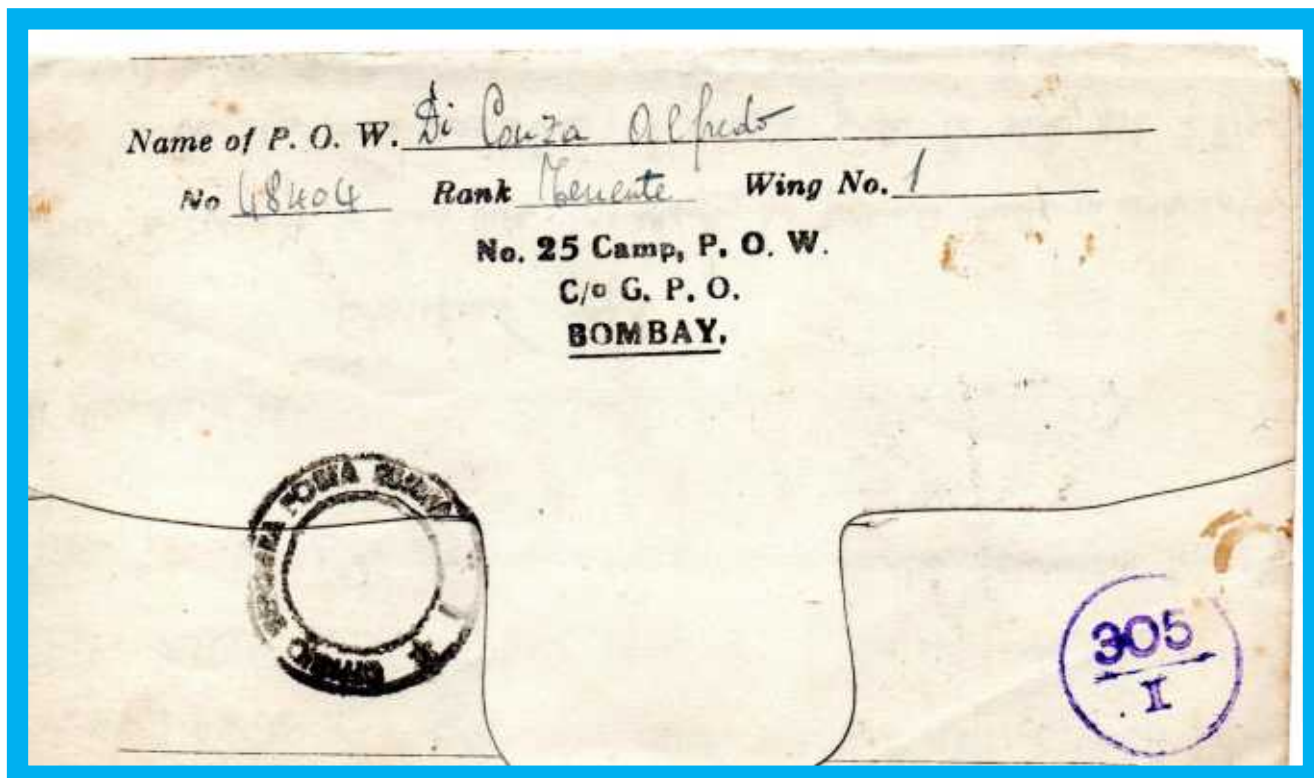 Name of P. O. W. Di Conza Alfredo
No 48404 Rank Tenente Wing No. 1
No. 25 Camp, P. O. W.
C/o G. P. O.
BOMBAY.
POSTA
305
I